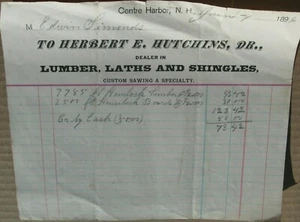 Centre Harbor, N. H. June 189
M Edwin Simonds
TO HERBERT E. HUTCHINS, DR.,
DEALER IN
LUMBER, LATHS AND SHINGLES,
CUSTOM SAWING A SPECIALTY.
7785 ft Hemlock Lumber
2500 ft Hemlock Boards
123 42
By Cash (5000) 50 00
73 42